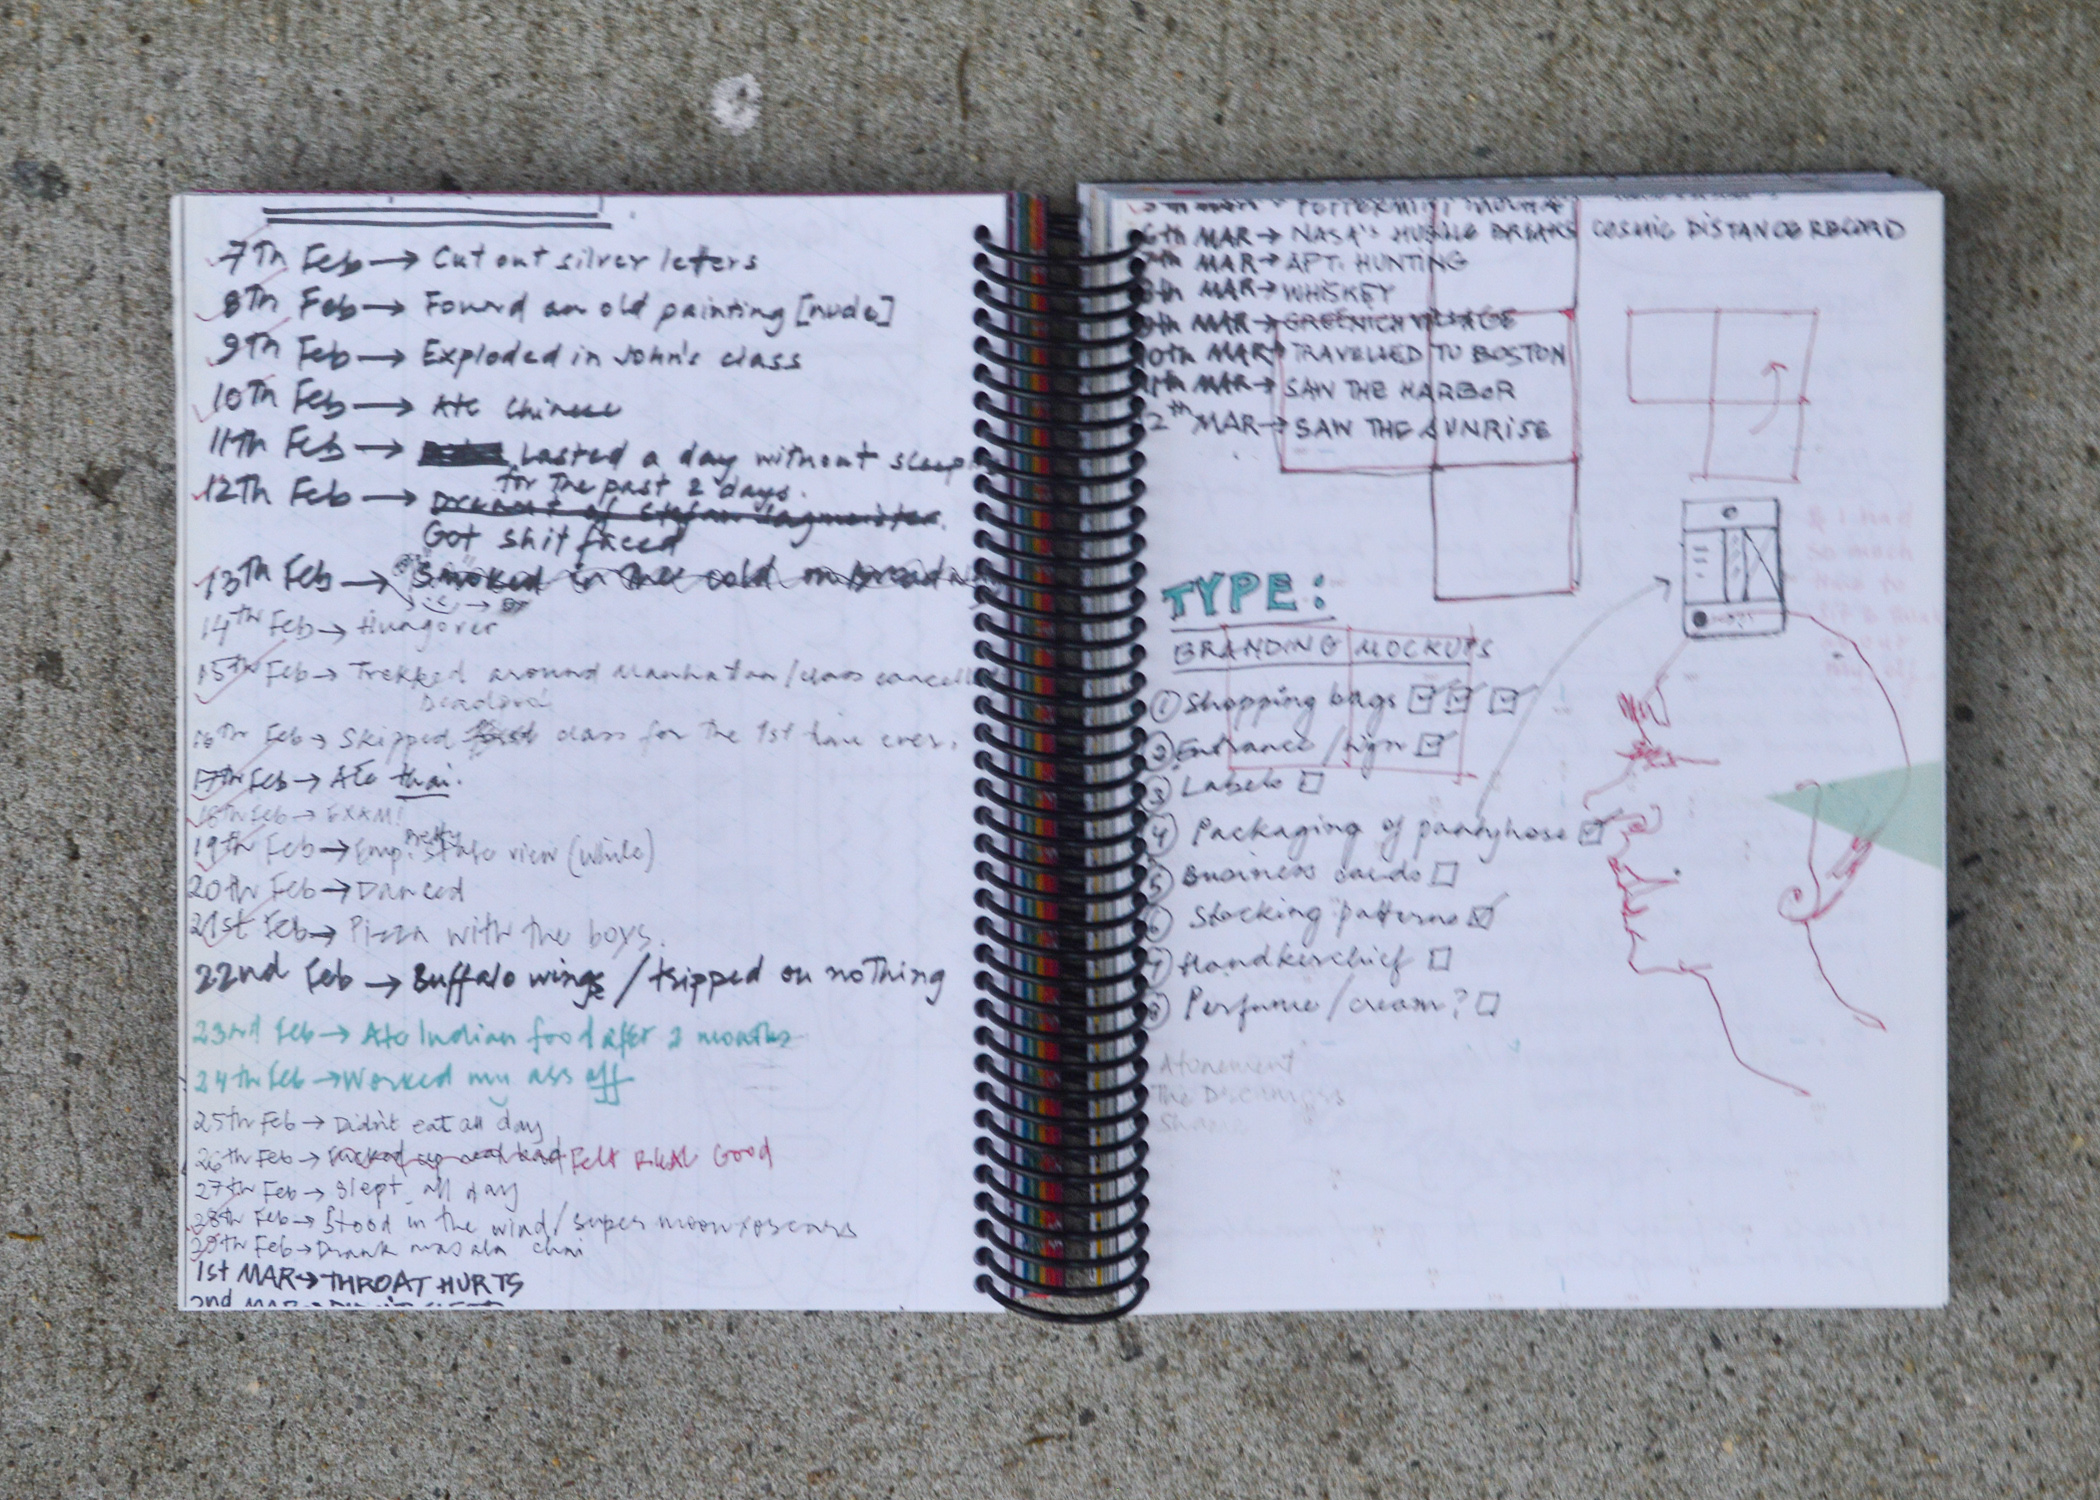 7th Feb → Cut out silver letters
8th Feb → Found an old painting [nude]
9th Feb → Exploded in John's class
10th Feb → Ate Chinese
11th Feb → Lasted a day without sleep
for the past 2 days.
12th Feb → Dreamt of Stefan Sagmeister.
Got shit faced
13th Feb → Smoked in the cold on Broadw
14th Feb → Hungover
15th Feb → Trekked around Manhattan / class cancell
16th Feb → Skipped class for the 1st time ever.
17th Feb → Ate thai.
18th Feb → EXAM!
19th Feb → Emp. State view (white)
20th Feb → Danced
21st Feb → Pizza with the boys.
22nd Feb → Buffalo wings / tripped on nothing
23rd Feb → Ate Indian food after 2 months
24th Feb → Worked my ass off
25th Feb → Didn't eat all day
26th Feb → Felt REAL Good
27th Feb → Slept all day
28th Feb → Stood in the wind / super moon + oscars
29th Feb → Drank masala chai
1st MAR → THROAT HURTS
2nd MAR →
MAR → PEPPERMINT MOCHA
6th MAR → NASA'S HUBBLE BREAKS COSMIC DISTANCE RECORD
7th MAR → APT. HUNTING
8th MAR → WHISKEY
9th MAR → GREENICH VILLAGE
10th MAR → TRAVELLED TO BOSTON
11th MAR → SAW THE HARBOR
12th MAR → SAW THE SUNRISE
TYPE:
BRANDING MOCKUPS
① Shopping bags
② Entrance / sign
③ Labels
④ Packaging of pantyhose
⑤ Business cards
⑥ Stocking patterns
⑦ Handkerchief
⑧ Perfume / cream?
Atonement
The Dreamers
Shame